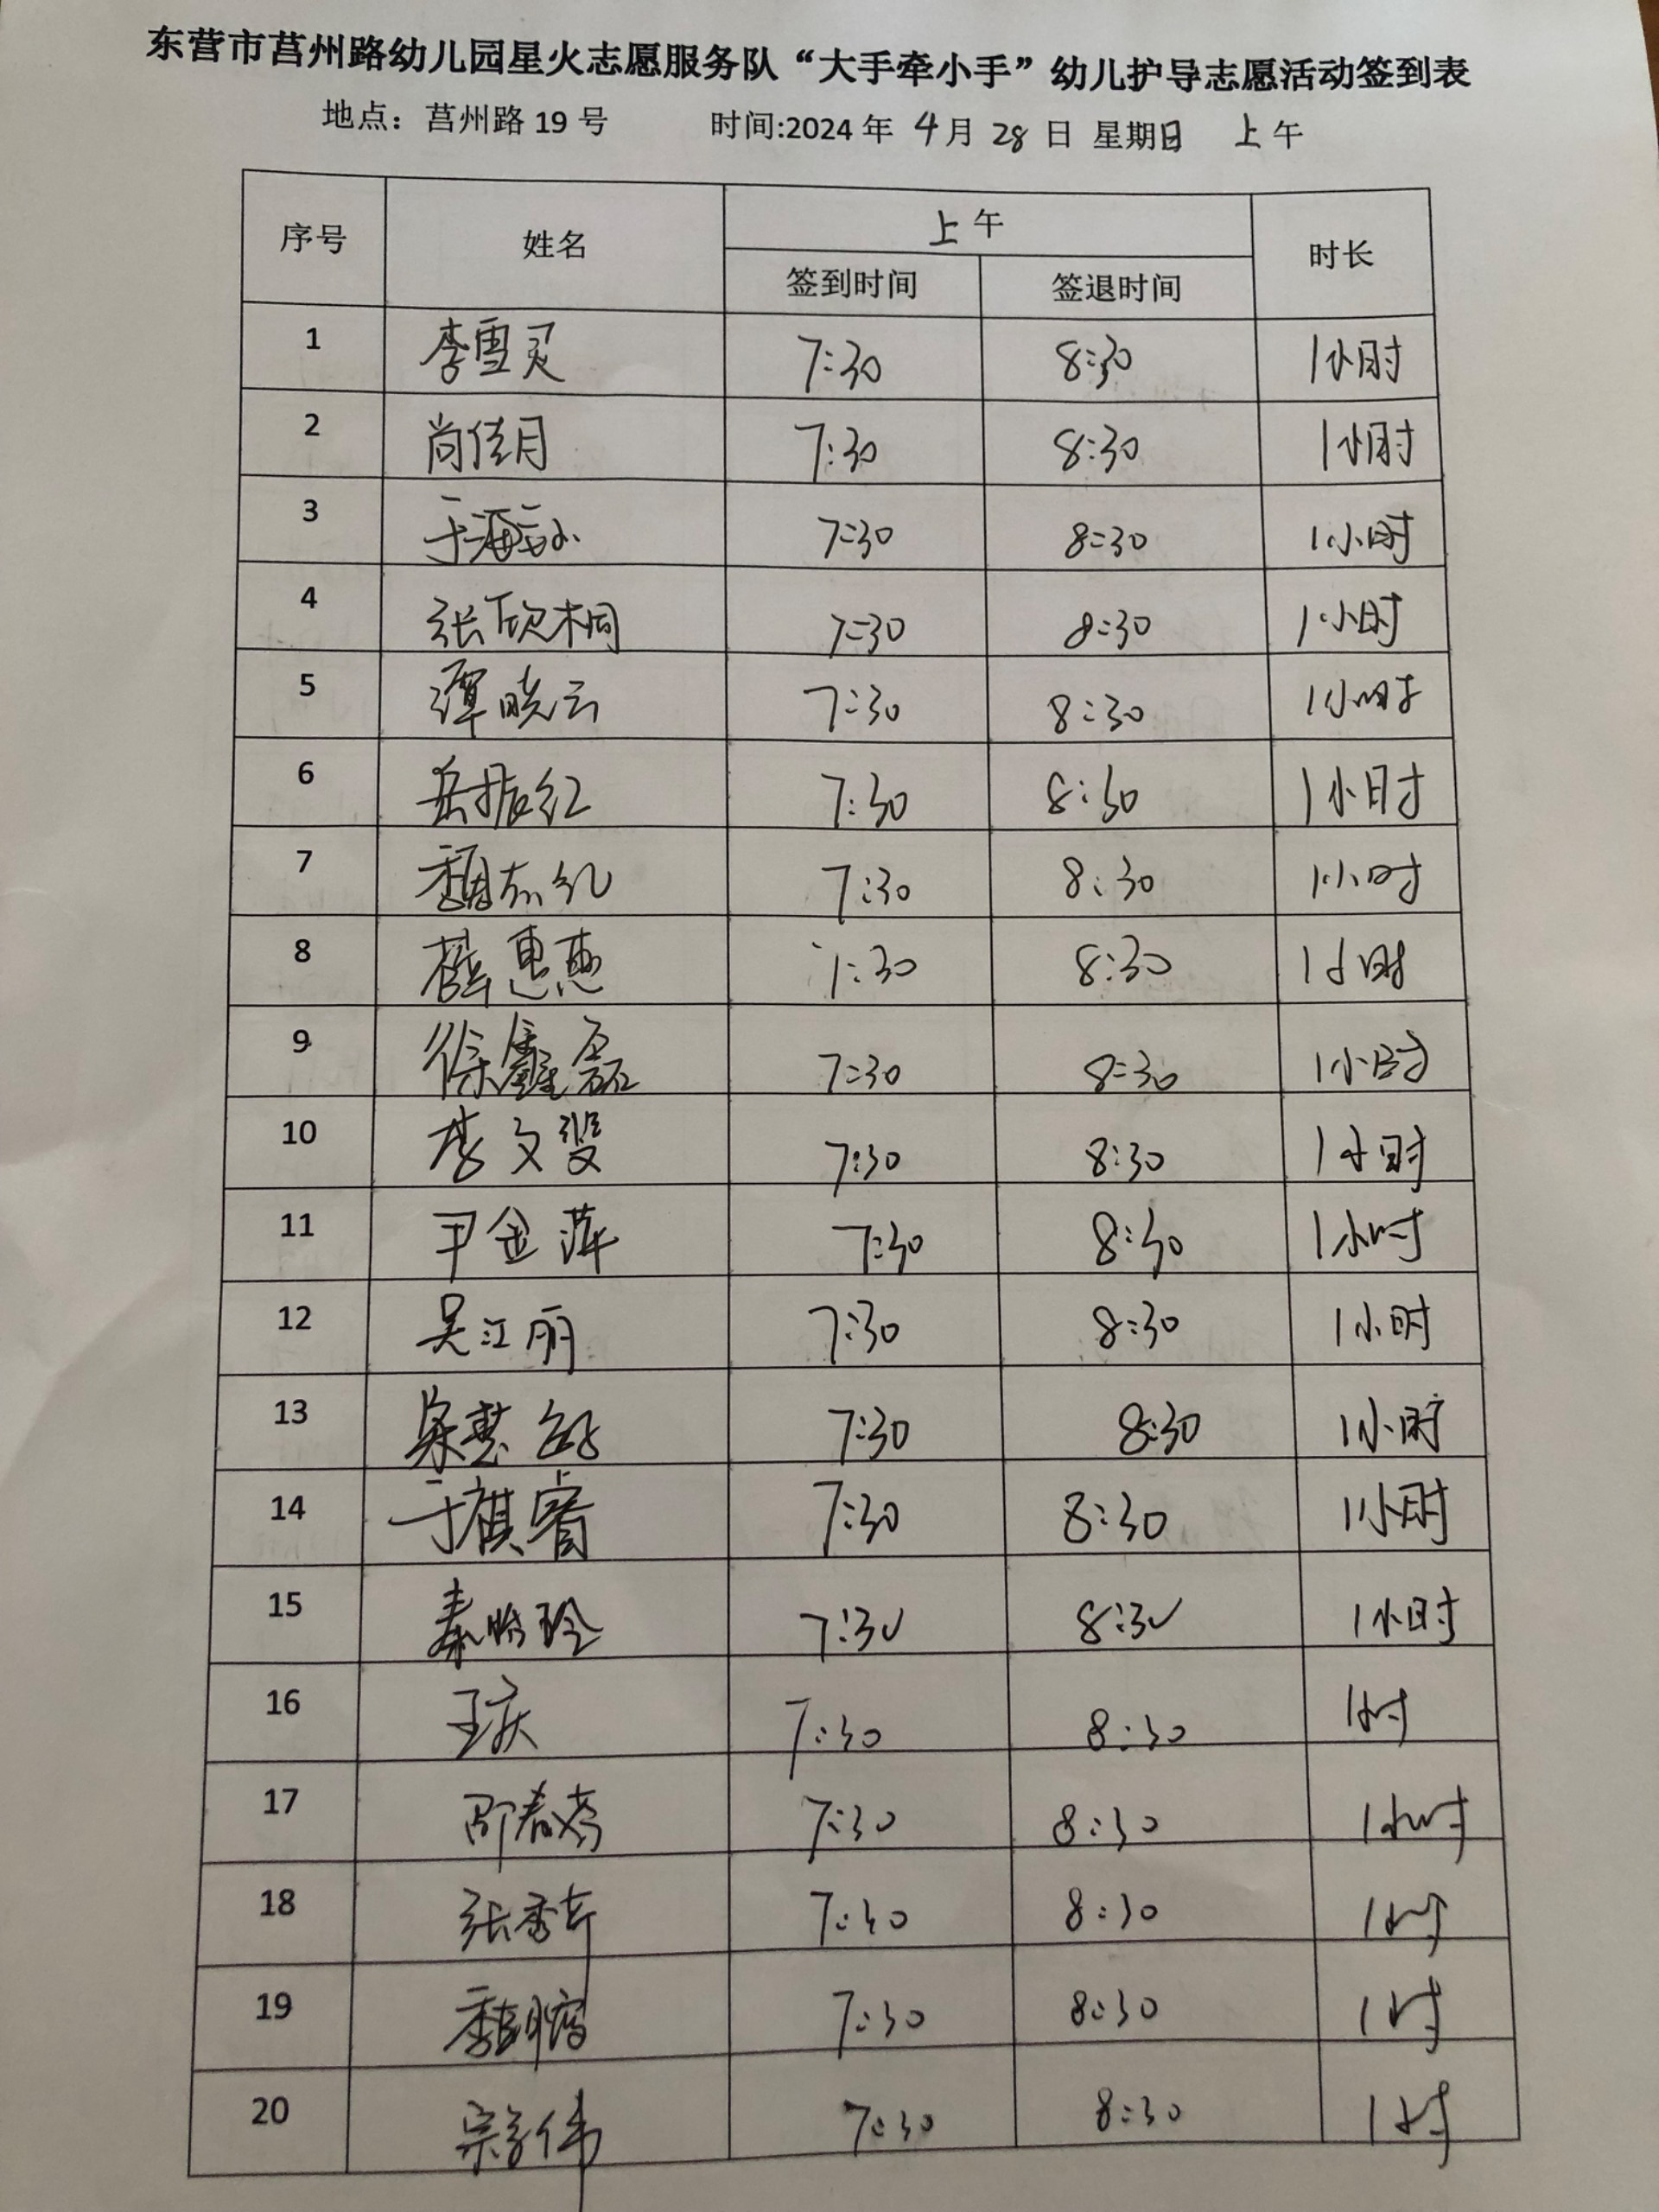 东营市莒州路幼儿园星火志愿服务队“大手牵小手”幼儿护导志愿活动签到表
地点：莒州路 19 号 时间:2024 年 4 月 28 日 星期日 上午
序号 姓名 上午 时长
签到时间 签退时间
1 李雪灵 7:30 8:30 1小时
2 尚佳月 7:30 8:30 1小时
3 于海 7:30 8:30 1小时
4 张欣桐 7:30 8:30 1小时
5 谭晓云 7:30 8:30 1小时
6 岳振红 7:30 8:30 1小时
7 魏志红 7:30 8:30 1小时
8 薛惠惠 7:30 8:30 1小时
9 徐鑫磊 7:30 8:30 1小时
10 李文斐 7:30 8:30 1小时
11 尹金萍 7:30 8:30 1小时
12 吴江丽 7:30 8:30 1小时
13 慧 7:30 8:30 1小时
14 于祺睿 7:30 8:30 1小时
15 秦晓玲 7:30 8:30 1小时
16 王庆 7:30 8:30 1小时
17 邵春芬 7:30 8:30 1小时
18 张秀芹 7:30 8:30 1小时
19 魏 7:30 8:30 1小时
20 宗学伟 7:30 8:30 1小时